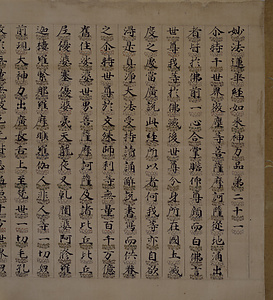 妙法蓮華經如來神力品第二十一
尒時千世界微塵等菩薩從地涌出
者皆於佛前一心合掌瞻仰尊顏而白佛言
世尊我等於佛滅後世尊分身所在國土滅
度之處當廣說此經所以者何我等亦自欲
得是真淨大法受持讀誦解說書寫而供養
之尒時世尊於文殊師利等無量百千万億
舊住娑婆世界菩薩摩訶薩及諸比丘比丘
尼優婆塞優婆夷天龍夜叉乾闥婆阿脩羅
迦樓羅緊那羅摩睺羅伽人非人等一切眾
前現大神力出廣長舌上至梵世一切毛孔